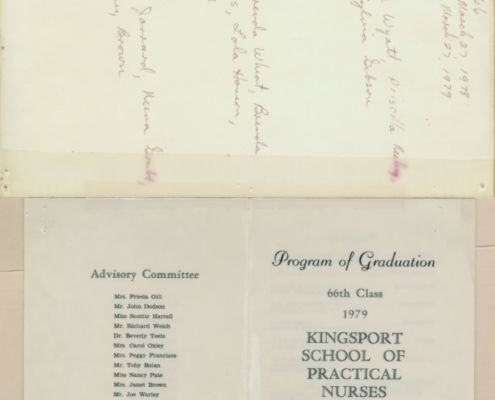 March 27, 1978
March 27, 1979
Wyatt Priscilla
Gibson
Wheat, Brenda
Lola Honson,
Jarrard, Neena
Brown
Advisory Committee
Mrs. Frieda Gill
Mr. John Dodson
Miss Scottie Harrell
Mr. Richard Welch
Dr. Beverly Teets
Mrs. Carol Oxley
Mrs. Peggy Francisco
Mr. Toby Bolan
Miss Nancy Pale
Mrs. Janet Brown
Mr. Joe Worley
Program of Graduation
66th Class
1979
KINGSPORT
SCHOOL OF
PRACTICAL
NURSES